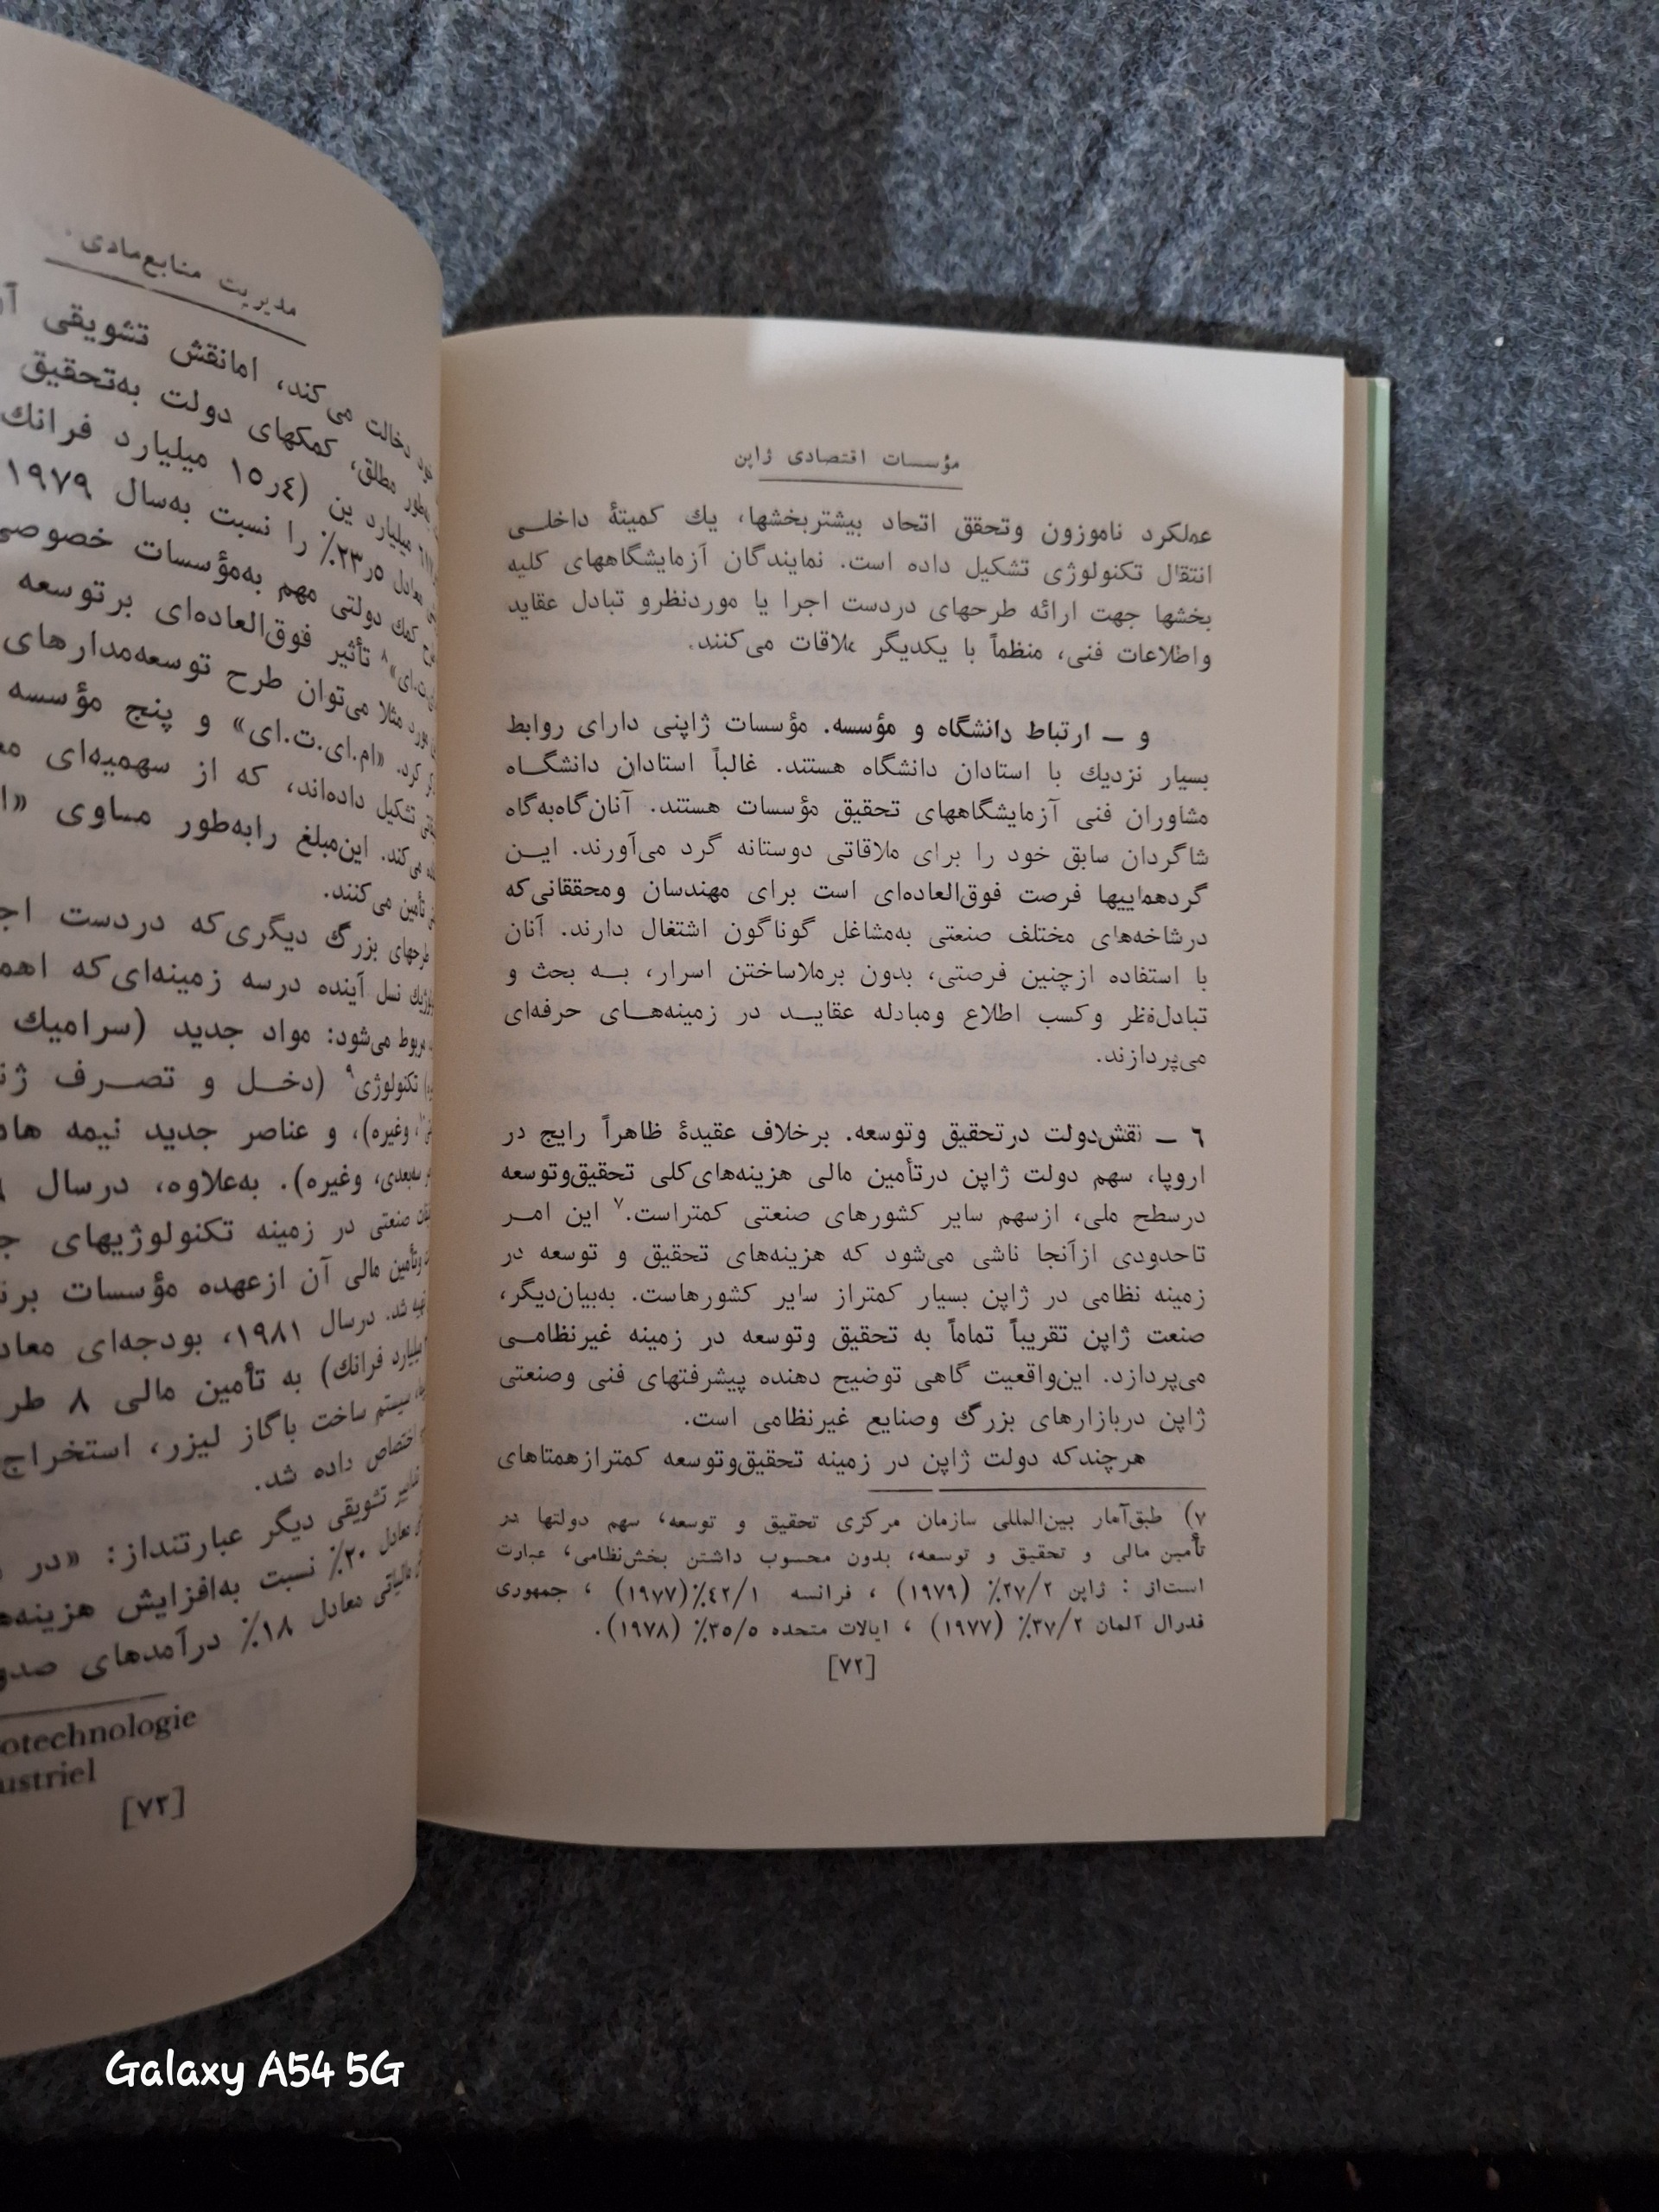 مؤسسات اقتصادی ژاپن
عملکرد ناموزون وتحقق اتحاد بیشتربخشها، یك کمیتهٔ داخلـی
انتقال تکنولوژی تشکیل داده است. نمایندگان آزمایشگاههای کلیه
بخشها جهت ارائه طرحهای دردست اجرا یا موردنظرو تبادل عقاید
واطلاعات فنی، منظماً با یکدیگر ملاقات می‌کنند.
و ــ ارتباط دانشگاه و مؤسسه. مؤسسات ژاپنی دارای روابط
بسیار نزدیك با استادان دانشگاه هستند. غالباً استادان دانشگـاه
مشاوران فنی آزمایشگاههای تحقیق مؤسسات هستند. آنان‌گاه‌به‌گاه
شاگردان سابق خود را برای ملاقاتی دوستانه گرد می‌آورند. ایـن
گردهماییها فرصت فوق‌العاده‌ای است برای مهندسان ومحققانی‌که
درشاخه‌های مختلف صنعتی به‌مشاغل گوناگون اشتغال دارند. آنان
با استفاده ازچنین فرصتی، بدون برملاساختن اسرار، بـه بحث و
تبادل‌نظر وکسب اطلاع ومبادله عقایـد در زمینه‌هـای حرفه‌ای
می‌پردازند.
٦ ــ نقش‌دولت درتحقیق وتوسعه. برخلاف عقیدهٔ ظاهراً رایج در
اروپا، سهم دولت ژاپن درتأمین مالی هزینه‌های‌کلی تحقیق‌وتوسعه
درسطح ملی، ازسهم سایر کشورهای صنعتی کمتراست.۷ این امـر
تاحدودی ازآنجا ناشی می‌شود که هزینه‌های تحقیق و توسعه در
زمینه نظامی در ژاپن بسیار کمتراز سایر کشورهاست. به‌بیان‌دیگر،
صنعت ژاپن تقریباً تماماً به تحقیق وتوسعه در زمینه غیرنظامـی
می‌پردازد. این‌واقعیت گاهی توضیح دهنده پیشرفتهای فنی وصنعتی
ژاپن دربازارهای بزرگ وصنایع غیرنظامی است.
هرچندکه دولت ژاپن در زمینه تحقیق‌وتوسعه کمترازهمتاهای
۷) طبق‌آمار بین‌المللی سازمان مرکزی تحقیق و توسعه، سهم دولتها در
تأمین مالی و تحقیق و توسعه، بدون محسوب داشتن بخش‌نظامی، عبارت
است‌از : ژاپن ۲۷/۲٪ (۱۹۷۹) ، فرانسه ٤۲/۱٪(۱۹۷۷) ، جمهوری
فدرال آلمان ۳۷/۲٪ (۱۹۷۷) ، ایالات متحده ۳۵/۵٪ (۱۹۷۸).
[۷۲]
مدیریت منابع‌مادی
دخالت می‌کند، امانقش تشویقی
مطلق، کمکهای دولت به‌تحقیق
میلیارد ین (٤ر۱۵ میلیارد فرانك
معادل ۵ر۲۳٪ را نسبت به‌سال ۱۹۷۹
کمك دولتی مهم به‌مؤسسات خصوصی
تأثیر فوق‌العاده‌ای برتوسعه
مثلا می‌توان طرح توسعه‌مدارهای
کرد. «ام.ای.ت.ای» و پنج مؤسسه
تشکیل داده‌اند، که از سهمیه‌ای
می‌کند. این‌مبلغ رابه‌طور مساوی
تأمین می‌کنند.
طرحهای بزرگ دیگری‌که دردست
نسل آینده درسه زمینه‌ای‌که
مربوط می‌شود: مواد جدید (سرامیك
تکنولوژی۹ (دخـل و تصـرف
وغیره)، و عناصر جدید نیمه
سه‌بعدی، وغیره). به‌علاوه، درسال
صنعتی در زمینه تکنولوژیهای
وتأمین مالی آن ازعهده مؤسسات
شد. درسال ۱۹۸۱، بودجه‌ای
میلیارد فرانك) به تأمین مالی ۸
سیستم ساخت باگاز لیزر، استخراج
اختصاص داده شد.
تشویقی دیگر عبارتنداز: «در
معادل ۲۰٪ نسبت به‌افزایش
مالیاتی معادل ۱۸٪ درآمدهای
otechnologie
ustriel
[۷۳]
Galaxy A54 5G